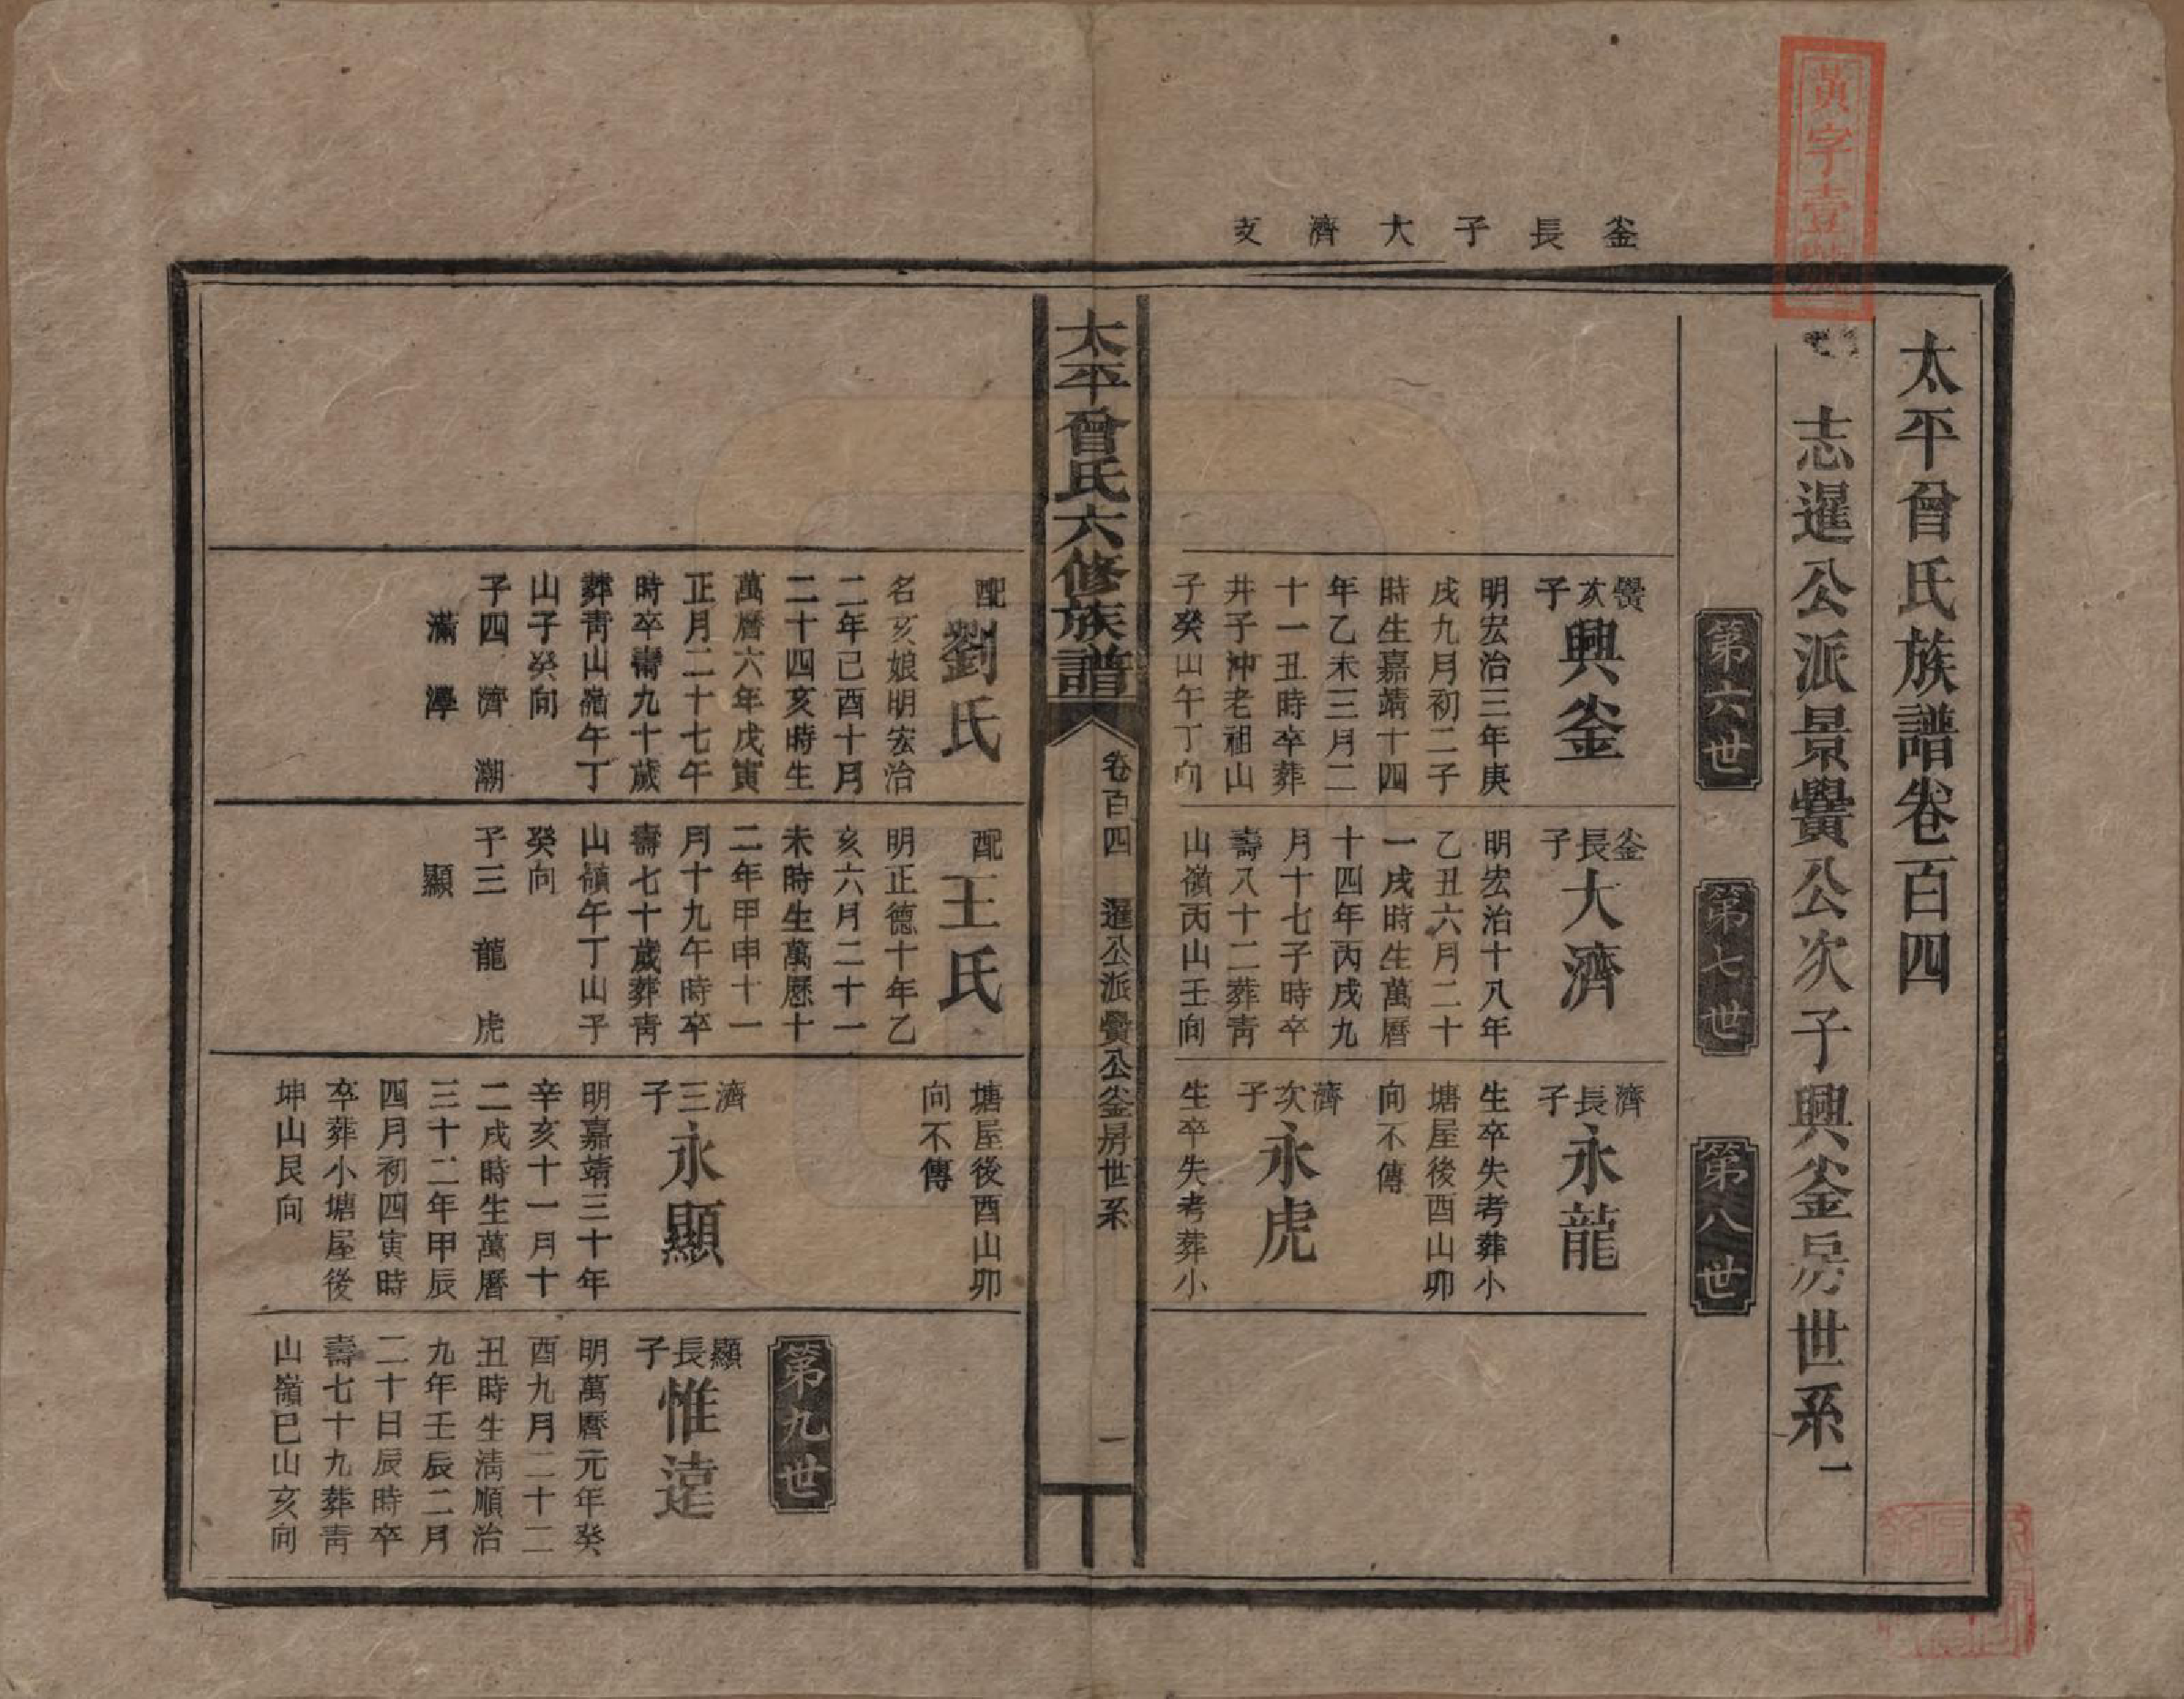 黃字壹號
釡長子大濟支
太平曾氏族譜卷百四
志暹公派景黌公次子興釡房世系一
第六世
第七世
第八世
黌次子
興釡
明宏治三年庚
戌九月初二子
時生嘉靖十四
年乙未三月二
十一丑時卒葬
井子沖老祖山
子癸山午丁向
釡長子
大濟
明宏治十八年
乙丑六月二十
一戌時生萬曆
十四年丙戌九
月十七子時卒
壽八十二葬靑
山嶺丙山壬向
濟長子
永龍
生卒失考葬小
塘屋後酉山卯
向不傳
濟次子
永虎
生卒失考葬小
太平曾氏六修族譜
卷百四
暹公派黌公釡房世系
一
配
劉氏
名亥娘明宏治
二年己酉十月
二十四亥時生
萬曆六年戊寅
正月二十七午
時卒壽九十歲
葬靑山嶺午丁
山子癸向
子四 濟 潮
滿 潭
配
王氏
明正德十年乙
亥六月二十一
未時生萬厯十
二年甲申十一
月十九午時卒
壽七十歲葬靑
山嶺午丁山子
癸向
子三 龍 虎
顯
塘屋後酉山卯
向不傳
濟三子
永顯
明嘉靖三十年
辛亥十一月十
二戌時生萬曆
三十二年甲辰
四月初四寅時
卒葬小塘屋後
坤山艮向
第九世
顯長子
惟遠
明萬曆元年癸
酉九月二十二
丑時生淸順治
九年壬辰二月
二十日辰時卒
壽七十九葬靑
山嶺巳山亥向